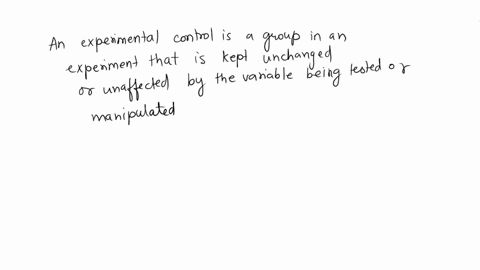 An experimental control is a group in an
experiment that is kept unchanged
or unaffected by the variable being tested or
manipulated